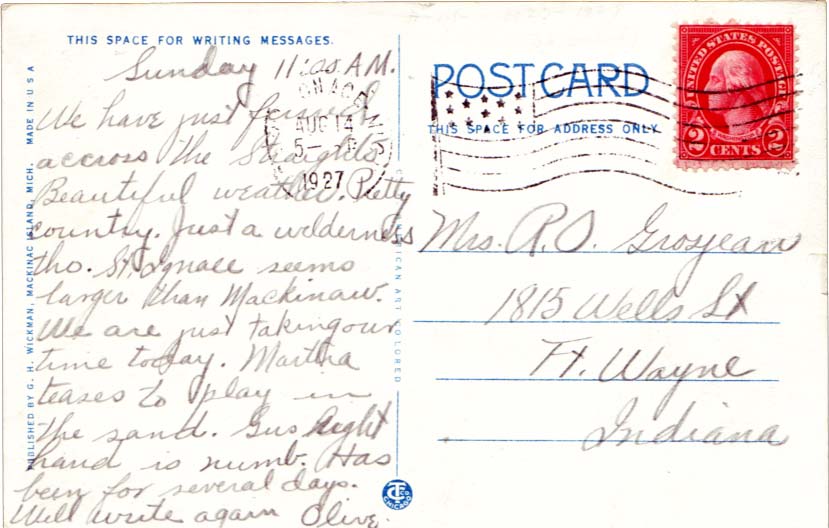 THIS SPACE FOR WRITING MESSAGES.
Sunday 11:00 A.M.
We have just ferried
accross the Straights
Beautiful weather. Pretty
country. Just a wilderness
tho. St Ignace seems
larger than Mackinaw.
We are just taking our
time today. Martha
teases to play in
the sand. Gus Right
hand is numb. Has
been for several days.
Will write again Olive.
PUBLISHED BY G. H. WICKMAN, MACKINAC ISLAND, MICH. MADE IN U S A
AUG 14
5 - P
1927
AMERICAN ART COLORED
CHICAGO
POST CARD
THIS SPACE FOR ADDRESS ONLY
UNITED STATES POSTAGE
2 2
CENTS
Mrs. R. O. Grosjean
1815 Wells St
Ft. Wayne
Indiana